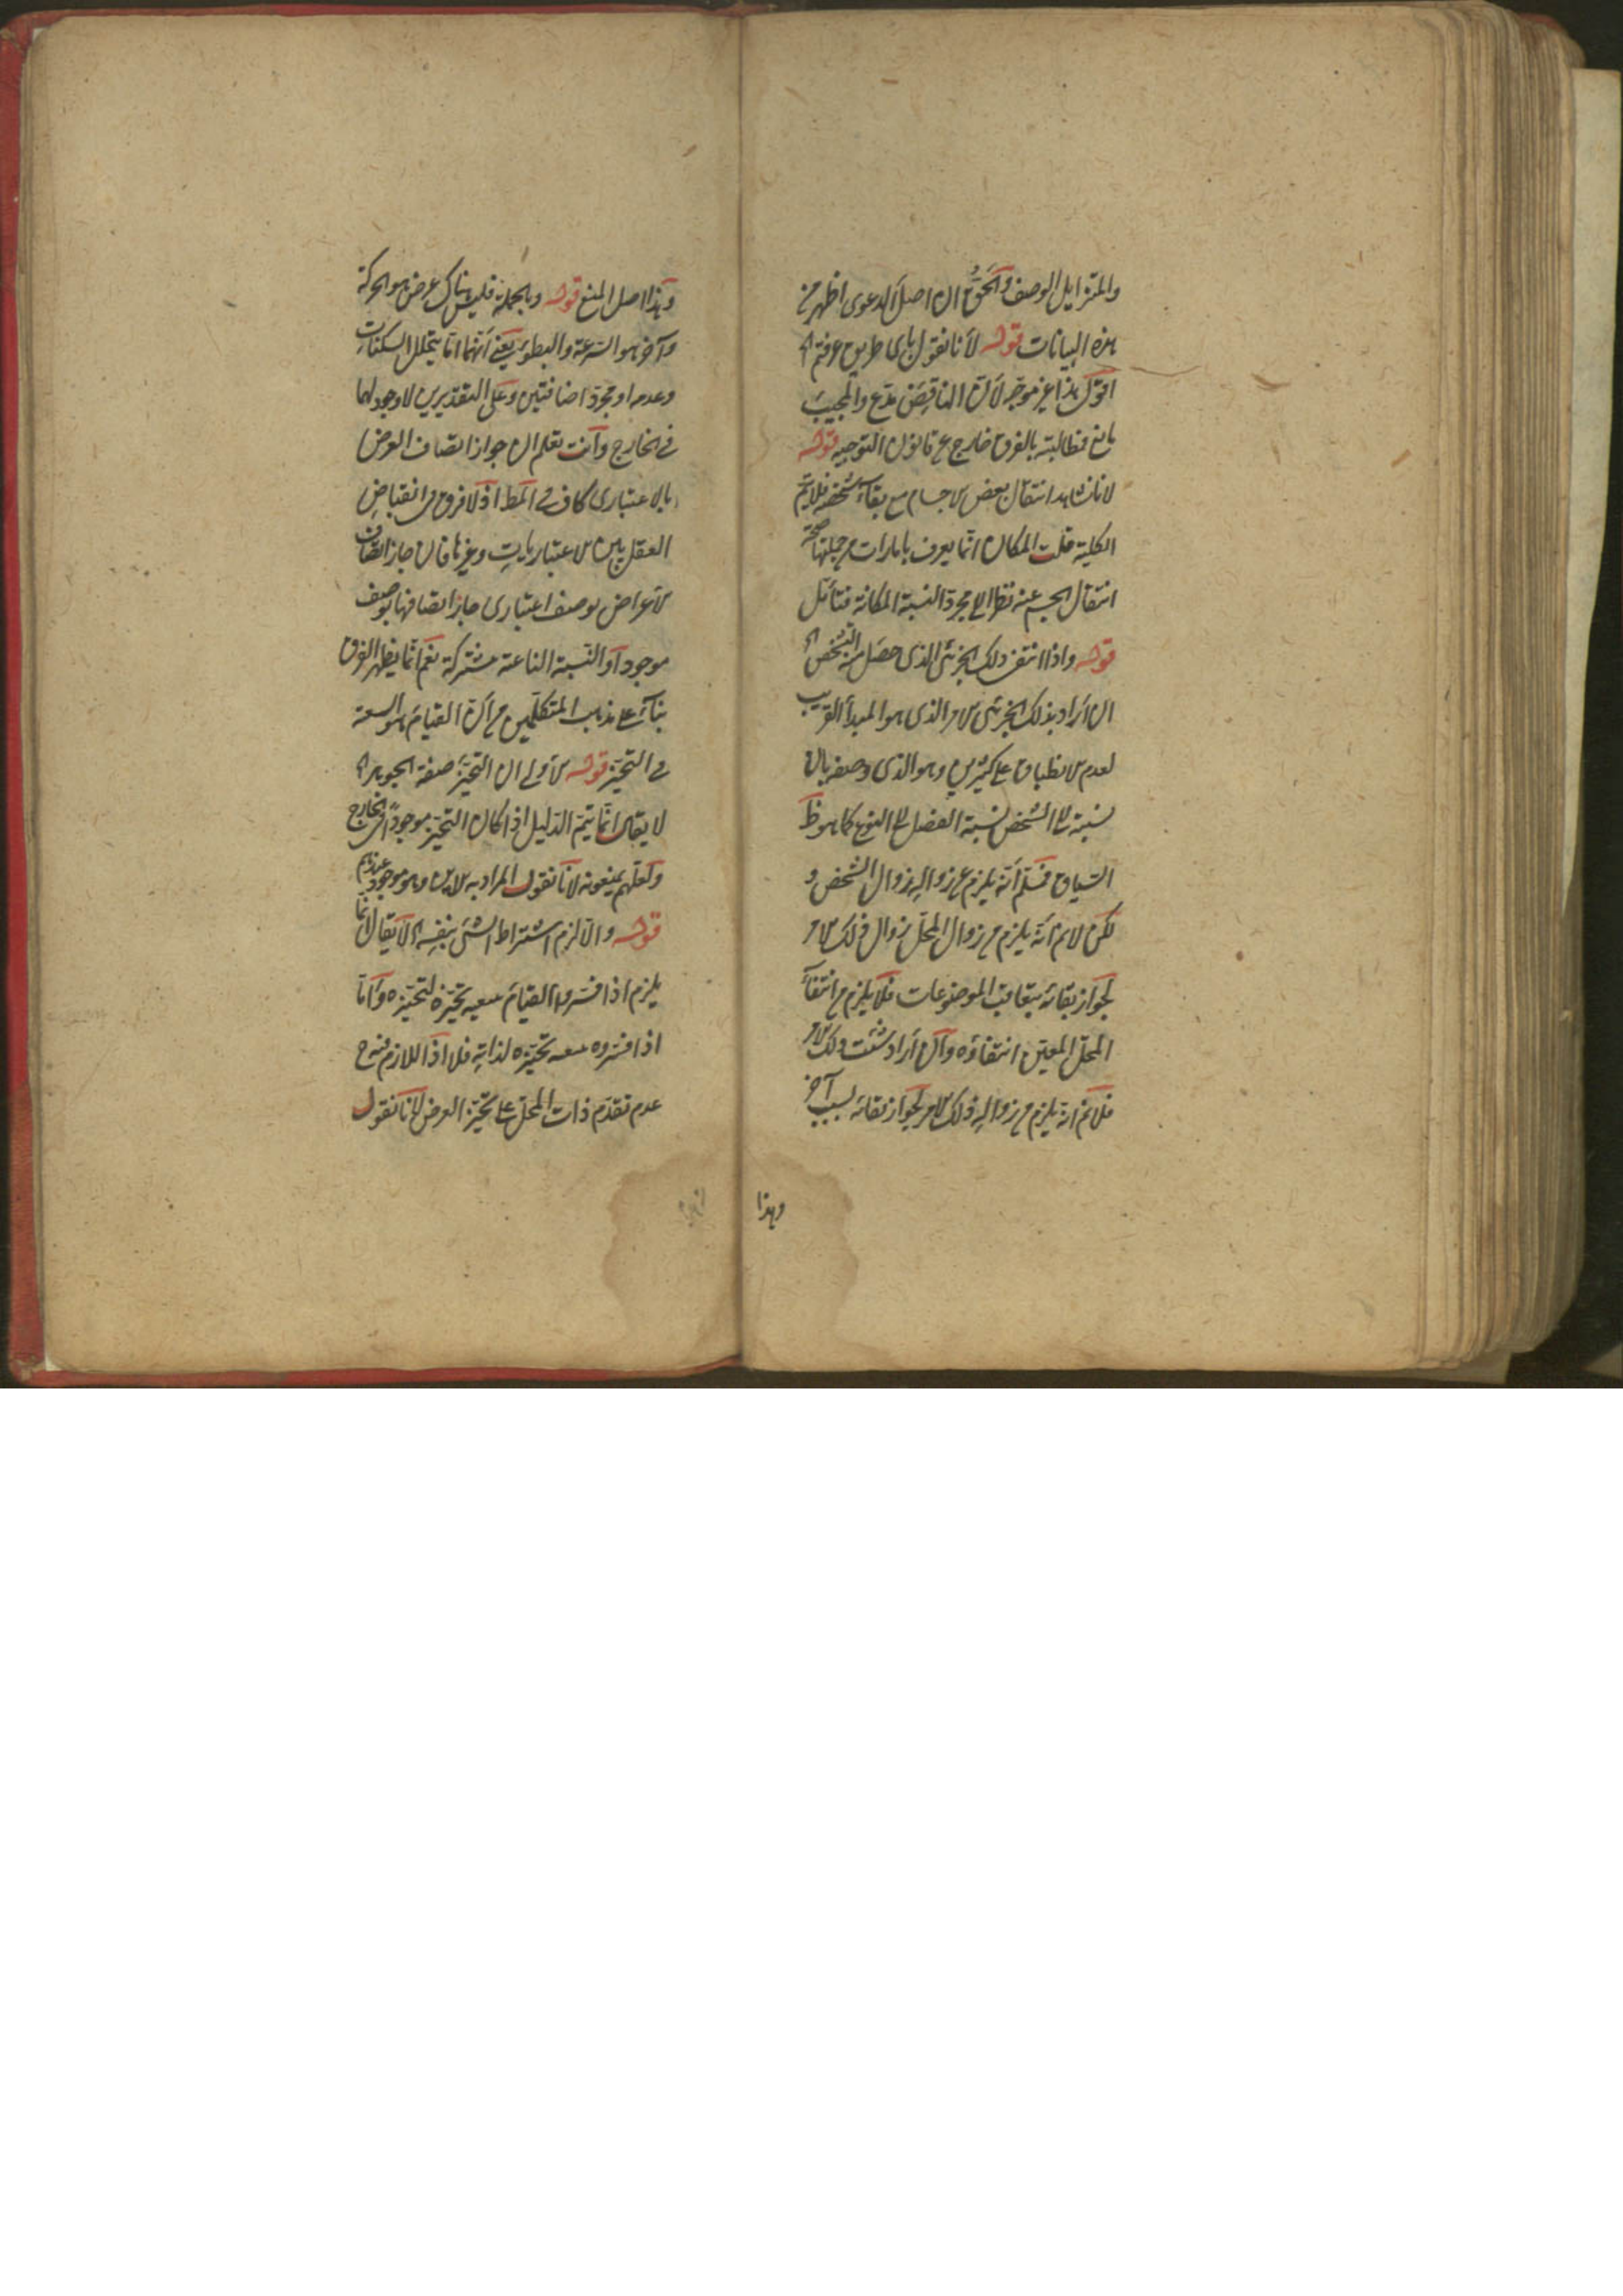 والمتزايل الوصف والحق ان اصل الدعوى اظهر من
هذه البيانات قوله لانا نقول باى طريق عرفتم اه
اقول هذا غير موجه لان الناقض مدع والمجيب
مانع فمطالبته بالفرق خارج عن قانون التوجيه قوله
لانا نشاهد انتقال بعض الاجسام مع بقاء تشخصه فلا يتم
الكلية قلت المكان انما يعرف بامارات من جملتها صحة
انتقال الجسم عنه نظرا الى مجرد النسبة المكانية فتأمل
قوله واذا انتفى ذلك الجزئى الذى حصل منه التشخص اه
ان أراد بذلك الجزئى الامر الذى هو المبدأ القريب
لعدم الانطباق على كثيرين وهو الذى وصفه بان
نسبته الى الشخص نسبة الفصل الى النوع كما هو ظ
السياق فمسلم أنه يلزم من زواله زوال الشخص و
لكن لانم انه يلزم من زوال المحل زوال ذلك الامر
لجواز بقائه بتعاقب الموضوعات فلا يلزم من انتفاء
المحل المعين انتفاؤه وان أراد مثبت ذلك الامر
فلانم انه يلزم من زواله ذلك الامر لجواز بقائه بسبب آخر
وهذا
وهذا اصل المنع قوله وبالجملة فليس هناك عرض هو الحركة
وآخر هو السرعة والبطؤ يعنى أنهما اما تخلل السكنات
وعدمه او مجرد اضافتين وعلى التقديرين لا وجود لهما
فى الخارج وأنت تعلم ان جواز اتصاف العرض
بالاعتبارى كاف فى المط اذ لا فرق فى انقباض
العقل بين الاعتباريات وغيرها فان جاز اتصاف
الاعراض بوصف اعتبارى جاز اتصافها بوصف
موجود أو النسبة الناعتة مشتركة نعم انما يظهر الفرق
بناء على مذهب المتكلمين من أن القيام هو التبعية
فى التحيز قوله الاولى ان التحيز صفة الجوهر اه
لا يقال انما يتم الدليل اذا كان التحيز موجودا فى الخارج
ولعلهم يمنعونه لانا نقول المراد به الاين وهو موجود عندهم
قوله والا لزم اشتراط الشئ بنفسه اه لا يقال انما
يلزم اذا فسروا القيام بتبعية تحيزه لتحيزه وأما
اذا فسروه بتبعية تحيزه لذاته فلا اذ اللازم منه ح
عدم تقدم ذات المحل على تحيز العرض لانا نقول